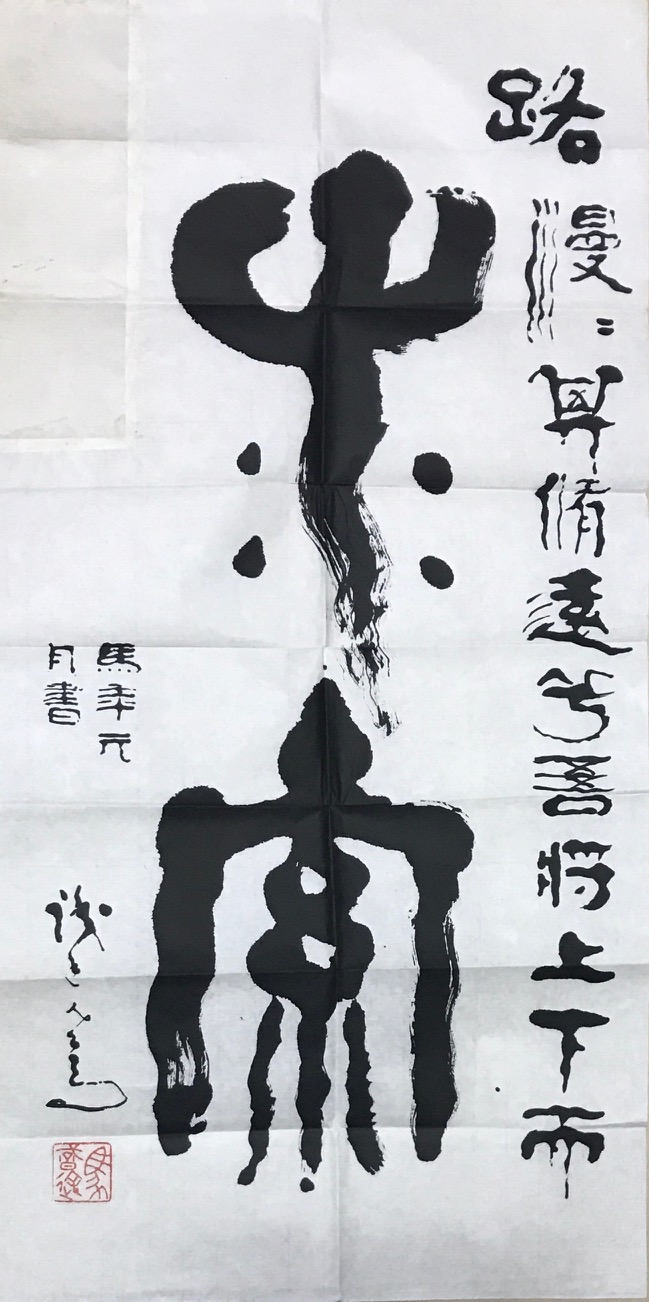 路漫〻其脩遠兮吾將上下而
求索
馬年元
月書
馬識途